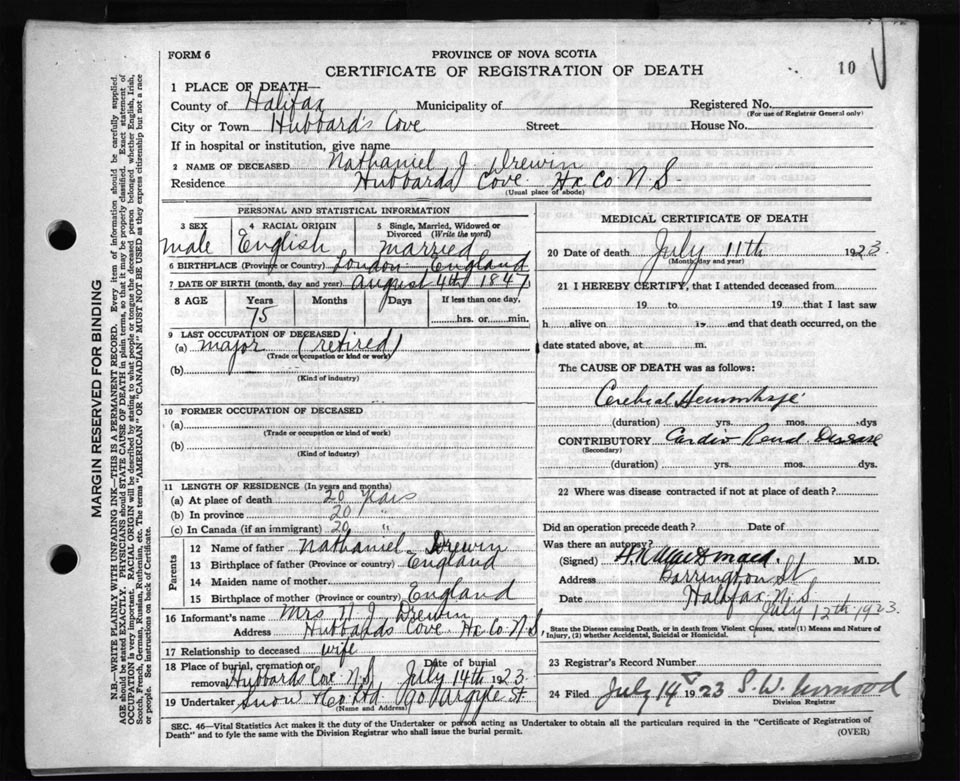 FORM 6
PROVINCE OF NOVA SCOTIA
CERTIFICATE OF REGISTRATION OF DEATH
10
1 PLACE OF DEATH—
County of Halifax Municipality of Registered No.
(For use of Registrar General only)
City or Town Hubbard's Cove Street House No.
If in hospital or institution, give name
2 NAME OF DECEASED Nathaniel J. Drewin
Residence Hubbards Cove. Hx Co. N. S.
(Usual place of abode)
PERSONAL AND STATISTICAL INFORMATION
3 SEX 4 RACIAL ORIGIN 5 Single, Married, Widowed or Divorced (Write the word)
male English married
6 BIRTHPLACE (Province or Country) London England
7 DATE OF BIRTH (month, day and year) August 4th 1847
8 AGE Years Months Days If less than one day,
75 hrs. or min.
9 LAST OCCUPATION OF DECEASED
(a) major (retired)
(Trade or occupation or kind of work)
(b)
(Kind of industry)
10 FORMER OCCUPATION OF DECEASED
(a)
(Trade or occupation or kind of work)
(b)
(Kind of industry)
11 LENGTH OF RESIDENCE (In years and months)
(a) At place of death 20 years
(b) In province 20 "
(c) In Canada (if an immigrant) 20 "
Parents
12 Name of father Nathaniel Drewin
13 Birthplace of father (Province or country) England
14 Maiden name of mother
15 Birthplace of mother (Province or country) England
16 Informant's name Mrs N. J. Drewin
Address Hubbards Cove Hx Co N.S.
17 Relationship to deceased wife
18 Place of burial, cremation or removal Hubbards Cove N.S. Date of burial July 14th 1923
19 Undertaker Snow & Co Ltd 90 Argyle St
(Name and Address)
MEDICAL CERTIFICATE OF DEATH
20 Date of death July 11th 1923
(Month, day and year)
21 I HEREBY CERTIFY, that I attended deceased from
19 to 19 that I last saw
h alive on 19 and that death occurred, on the
date stated above, at m.
The CAUSE OF DEATH was as follows:
Cerebral Hemorrhage
(duration) yrs. mos. dys
CONTRIBUTORY Cardio Renal Disease
(Secondary)
(duration) yrs. mos. dys.
22 Where was disease contracted if not at place of death?
Did an operation precede death? Date of
Was there an autopsy?
(Signed) MacDonald M.D.
Address Barrington St
Date Halifax N.S.
July 12th 1923.
State the Disease causing Death, or in death from Violent Causes, state (1) Means and Nature of Injury, (2) whether Accidental, Suicidal or Homicidal.
23 Registrar's Record Number
24 Filed July 14 1923 S. W.
Division Registrar
SEC. 46—Vital Statistics Act makes it the duty of the Undertaker or person acting as Undertaker to obtain all the particulars required in the "Certificate of Registration of Death" and to fyle the same with the Division Registrar who shall issue the burial permit.
(OVER)
MARGIN RESERVED FOR BINDING
N.B.—WRITE PLAINLY WITH UNFADING INK—THIS IS A PERMANENT RECORD. Every item of information should be carefully supplied.
AGE should be stated EXACTLY. PHYSICIANS should STATE CAUSE OF DEATH in plain terms, so that it may be properly classified. Exact statement of
OCCUPATION is very important. RACIAL ORIGIN will be described by stating to what people or tongue the deceased person belonged whether English, Irish,
Scotch, French, German, Russian, Ruthenian, etc. The terms "AMERICAN" OR "CANADIAN" MUST NOT BE USED as they express citizenship but not a race
or people. See instructions on back of Certificate.